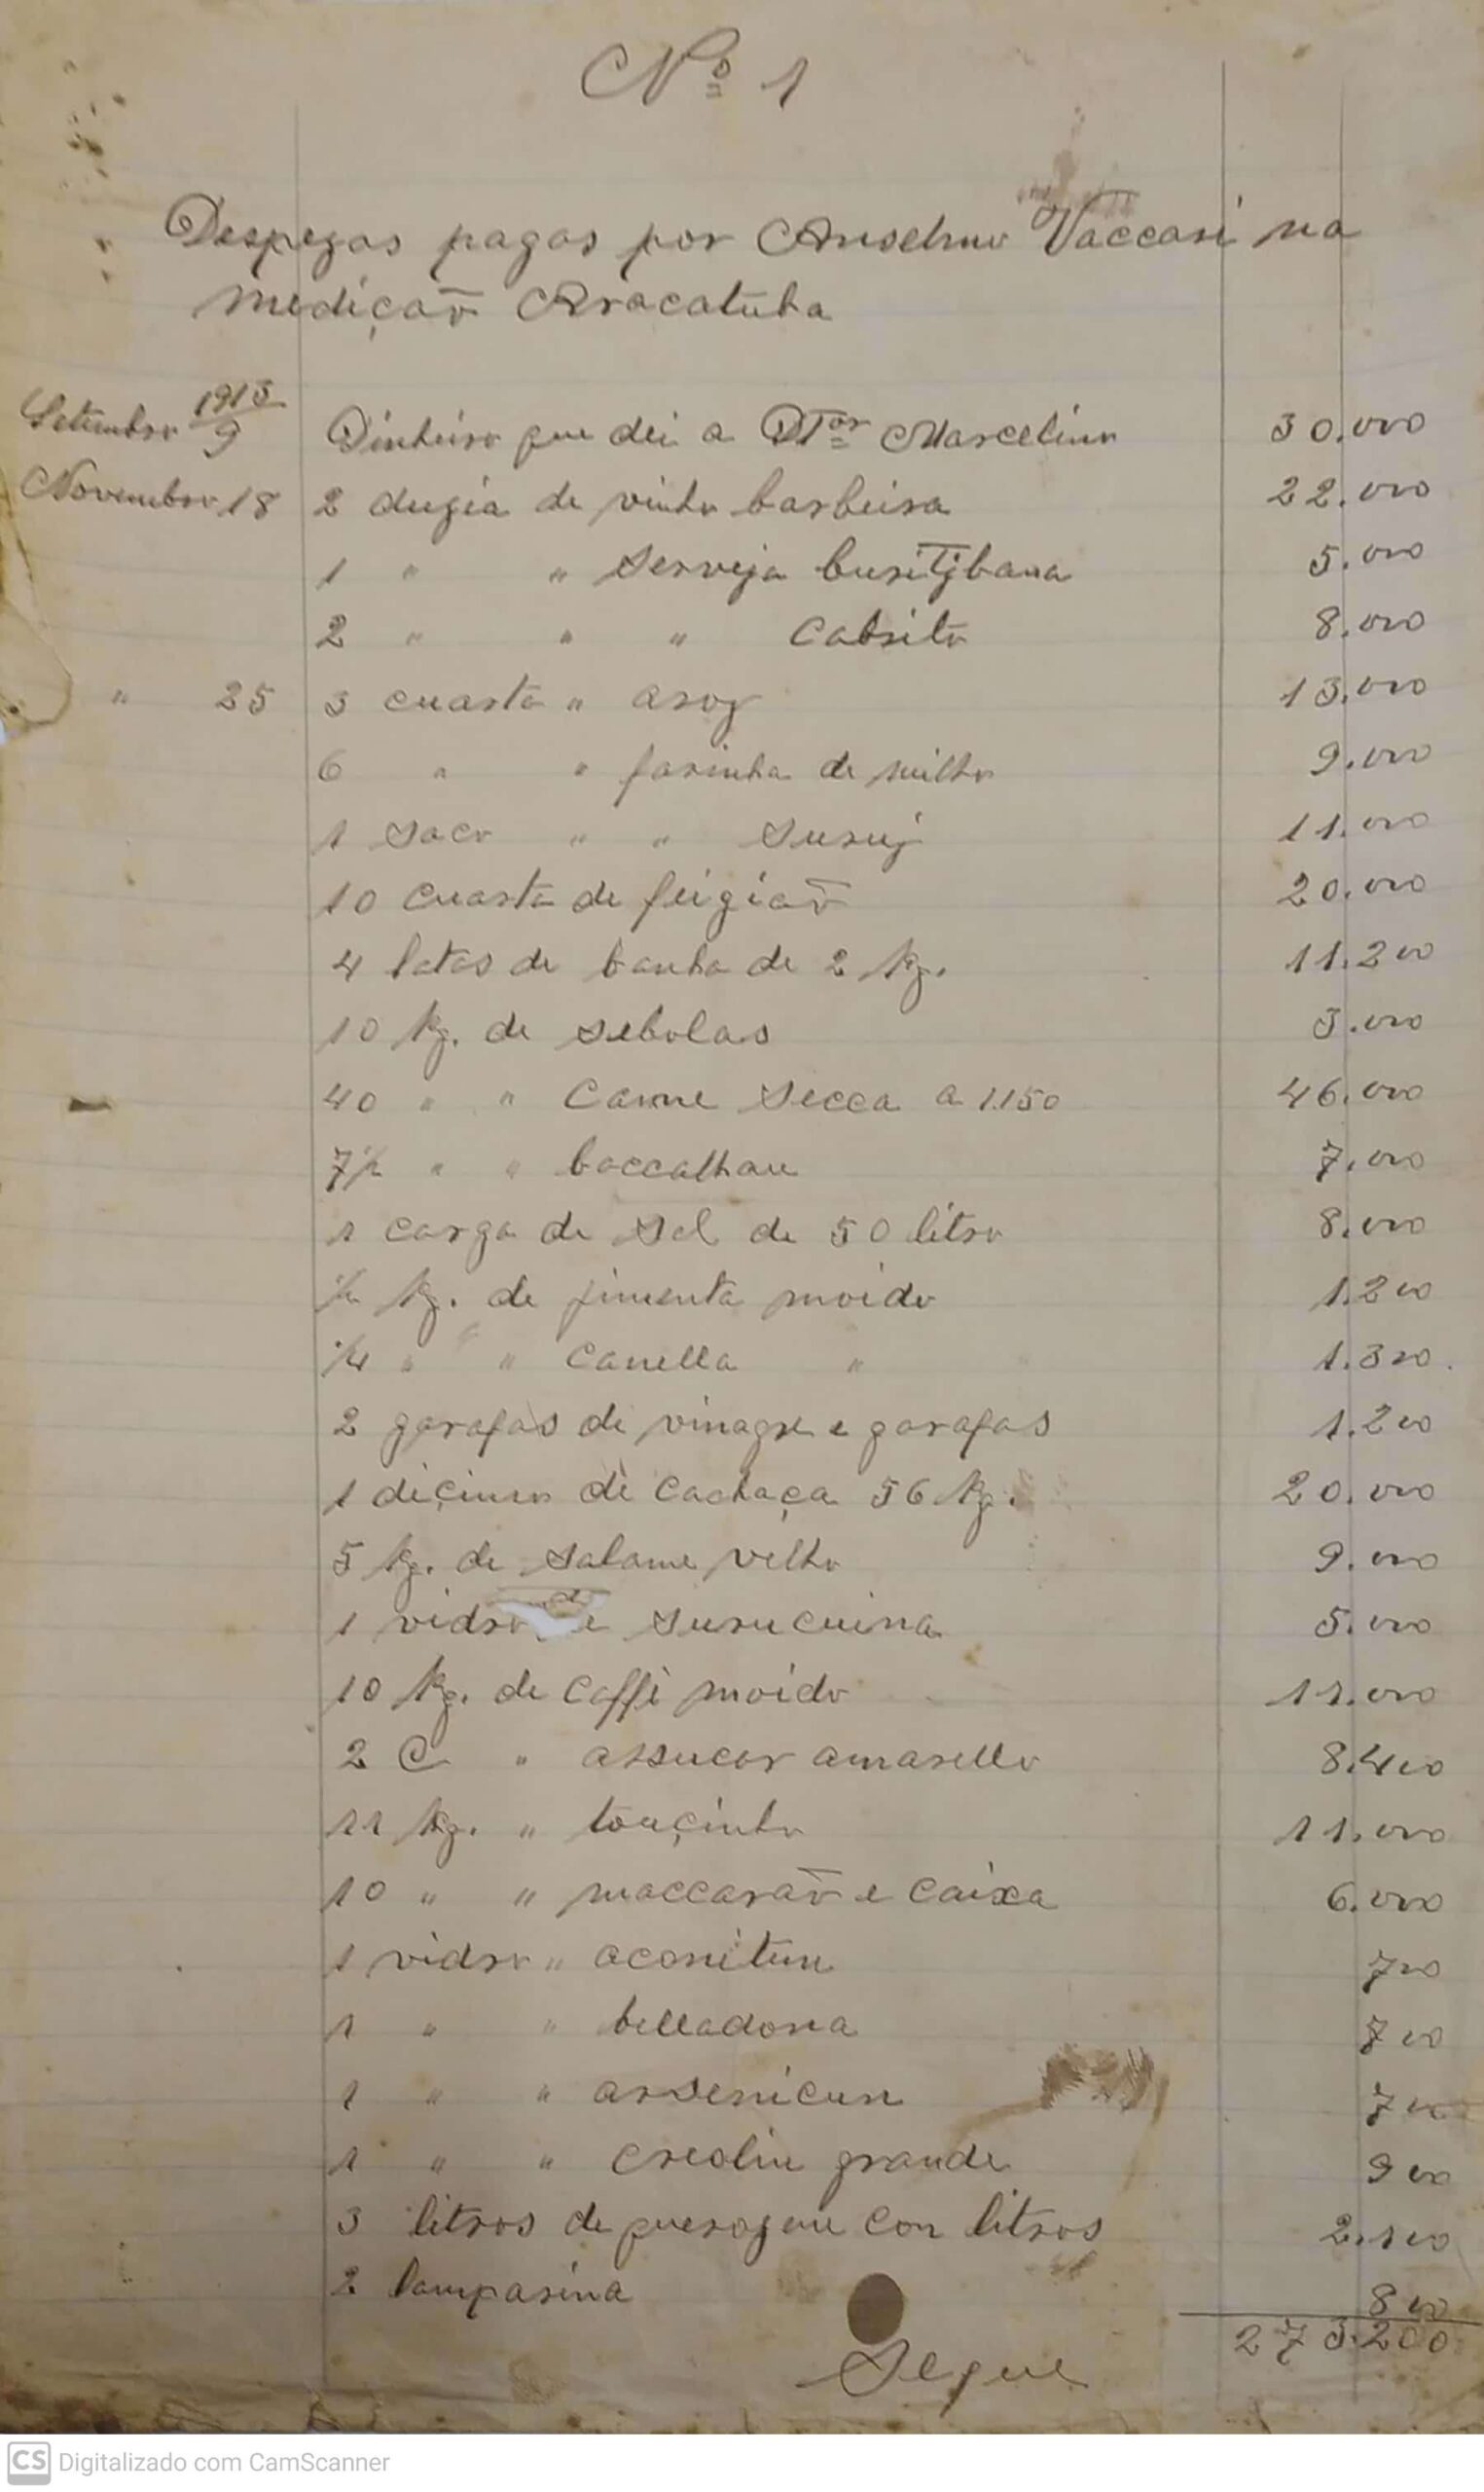 Nº 1
Despezas pagas por Anselmo Vaccari na
medição Aracatuba
Setembro 1913/9 Dinheiro que dei a DTor Marcelino 30.000
Novembro 18 2 duzia de vinho barbeira 22.000
1 " " Serveja curitjbana 5.000
2 " " " Cabrito 8.000
" 25 3 cuarta " aroz 13.000
6 " " farinha de milho 9.000
1 Saco " " Suruj 11.000
10 Cuarta de feigiaõ 20.000
4 latas de banha de 2 Kg. 11.200
10 Kg. de Sebolas 3.000
40 " " Carne Secca a 1.150 46.000
7½ " " baccalhau 7.000
1 carga de Sal de 50 litro 8.000
½ Kg. de pimenta moido 1.200
¼ " " Canella " 1.300
2 garafas de vinagre e garafas 1.200
1 deçimo de Cachaça 56 Kg. 20.000
5 Kg. de Salame velho 9.000
1 vidro de Surucuina 5.000
10 Kg. de Caffè moido 11.000
2 @ " assucar amarello 8.400
11 Kg. " touçinho 11.000
10 " " maccaraõ e Caixa 6.000
1 vidro " aconitum 700
1 " " belladona 700
1 " " arsenicum 700
1 " " Creolin grande 900
3 litros de con litros 2.100
2 lamparina 800
273.200
Segue
CS Digitalizado com CamScanner